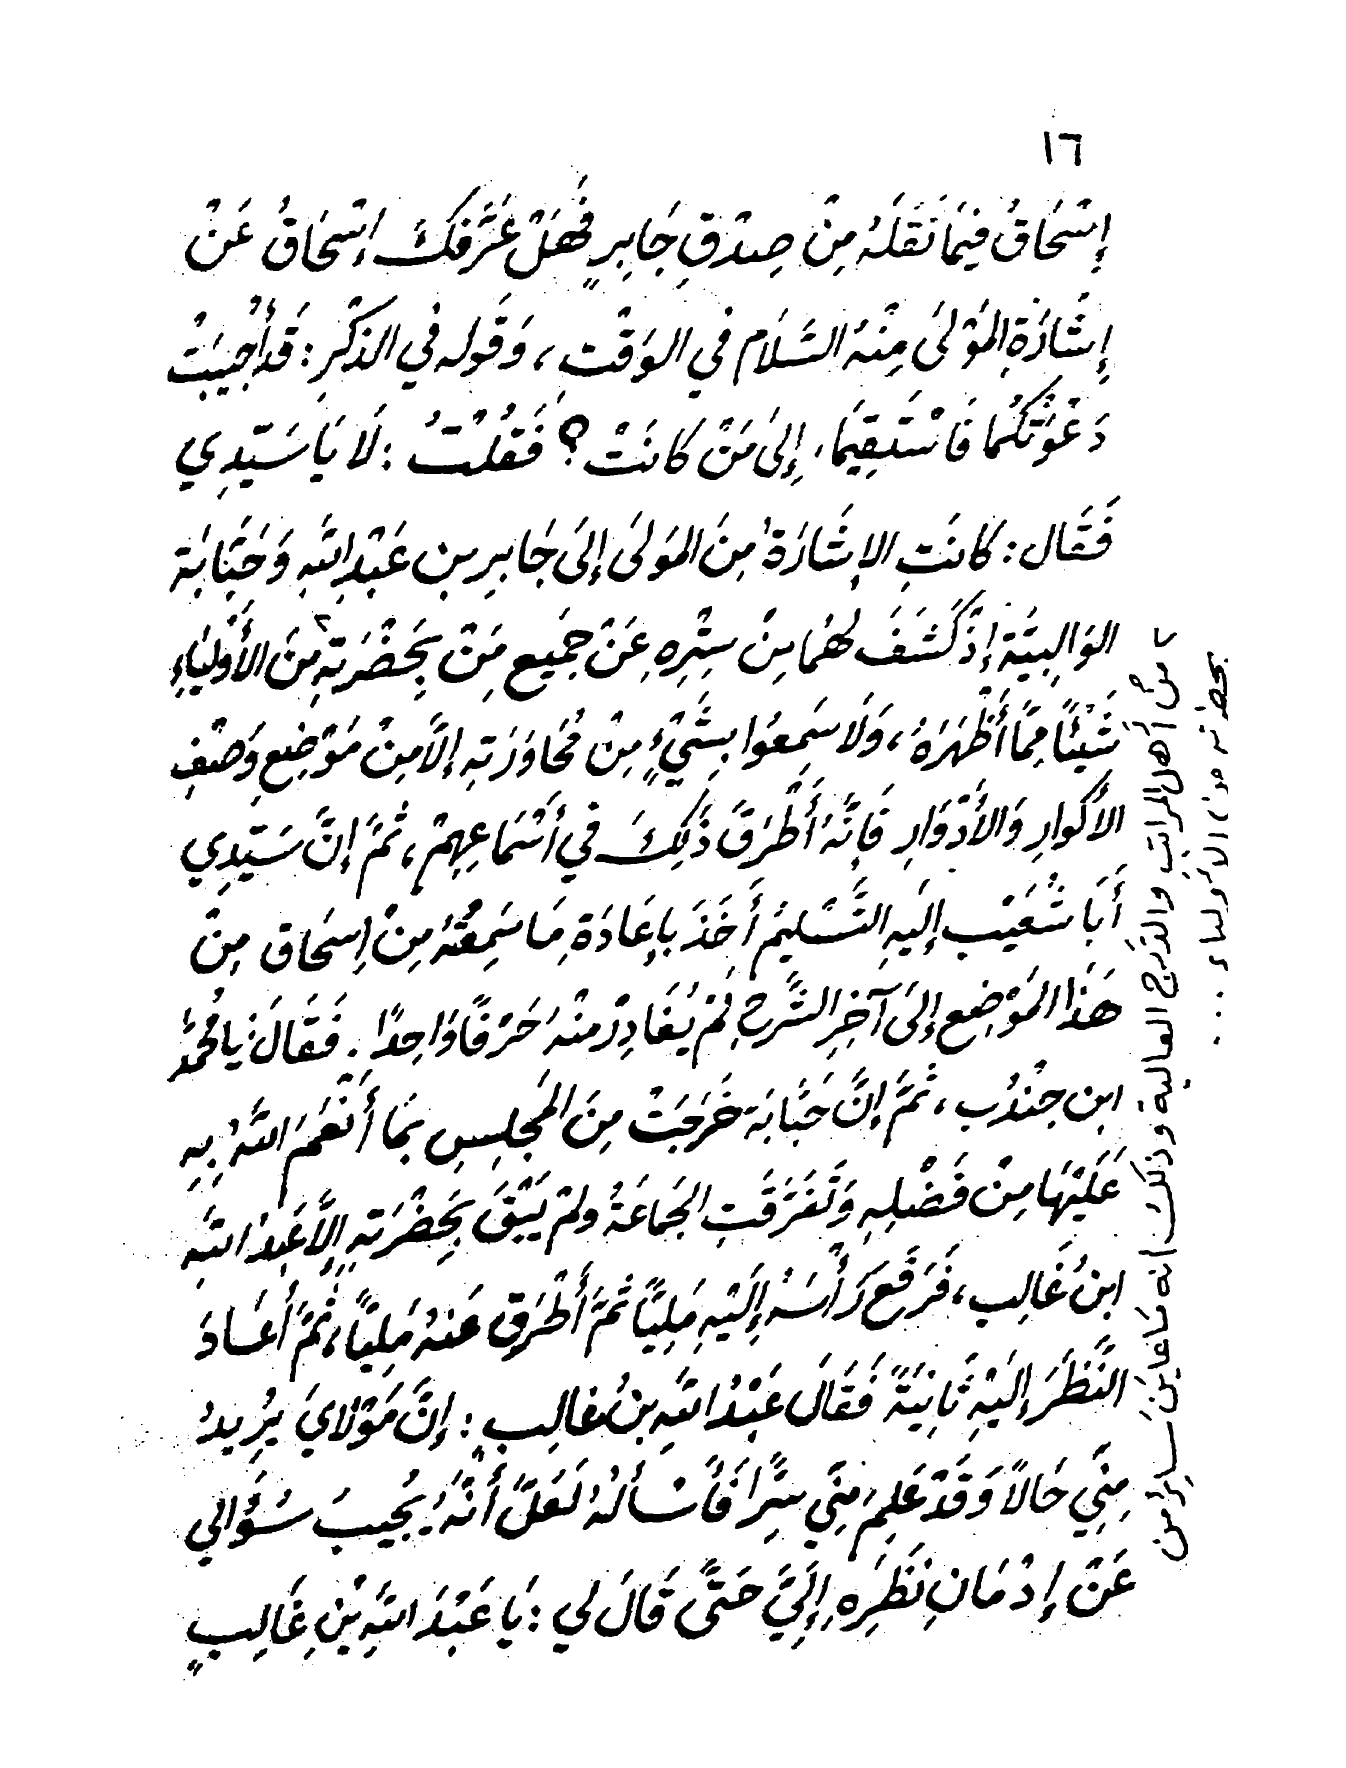 ١٦
إِسْحَاقُ فِيمَا نَقَلَهُ مِنْ صِدْقِ جَابِرٍ فَهَلْ عَرَّفَكَ إِسْحَاقُ عَنْ
إِشَارَةِ المَوْلَى مِنْهُ السَّلَام في الوَقْتِ، وَقَوله في الذِكْرِ: قَد أُجِيبَتْ
دَعْوَتُكُمَا فَاسْتَقِيمَا. إِلَى مَنْ كَانَتْ؟ فَقُلْتُ: لَا يَا سَيّدِي
فَقَال: كَانَتِ الإِشَارَةُ مِنَ المَوْلَى إِلَى جَابِرِ بنِ عَبْدِاللهِ وَحَبَّابَة
الوَالِبِيَّة إِذْ كَشَفَ لَهُمَا مِنْ سِتْرِهِ عَنْ جَمِيعِ مَنْ بِحَضْرَتِهِ مِنَ الأَوْلِيَاءِ
شَيْئًا مِمَّا أَظْهَرَهُ، وَلَا سَمِعُوا بِشَيْءٍ مِنْ مُحَاوَرَتِهِ إلَّا مِنْ مَوْضِعِ وَصْفِ
الأَكْوارِ وَالأَدْوَارِ فَإِنَّهُ أَطْرَقَ ذَلِكَ في أَسْمَاعِهِمْ، ثُمَّ إِنَّ سَيّدِي
أَبَا شُعَيْب إِلَيهِ التَّسْلِيمُ أَخَذَ بِإِعَادَةِ مَا سَمِعْتُهُ مِنْ إِسحَاق مِنْ
هَذَا المَوْضِعِ إِلَى آخِرِ الشَّرْحِ لَمْ يُغَادِرْ مِنْهُ حَرْفًا وَاحِدًا. فَقَالَ: يا مُحَمَّد
ابن جنْدُب، ثُمَّ إِنَّ حَبَّابَة خَرَجَتْ مِنَ المَجْلِسِ بِمَا أَنْعَمَ اللهُ بِهِ
عَلَيْهَا مِنْ فَضْلِهِ وَتَفَرَّقَتِ الجَمَاعَةُ ولَمْ يَبْقَ بِحَضْرَتِهِ إِلَّا عَبْدُ اللهِ
ابنُ غَالِب، فَرَفَعَ رَأْسَهُ إِلَيْهِ مَلِيًّا ثُمَّ أَطْرَقَ عَنهُ مَلِيًّا، ثُمَّ أَعَادَ
النَّظَرَ إِلَيْهِ ثَانِيَةً فَقَالَ عَبْدُ اللهِ بنُ غالِبٍ: إِنَّ مَوْلَايَ يُرِيدُ
مِنِّي حَالاً وَقَدْ عَلِمَ مِنِّي سِرًّا فَأَسْأَلهُ لَعَلَّ أَنَّهُ يُجِيبَ سُؤَالي
عَنْ إِدْمَانِ نَظَرِهِ إِلَيَّ حَتَّى قَالَ لي: يَا عَبْدَ اللهِ بْنِ غَالِبٍ
مِنْ أَهل المراتب والدَّرج العالية وذلك أنه مَا عايَن سِتراً من
بحضرته من الأولياء ...